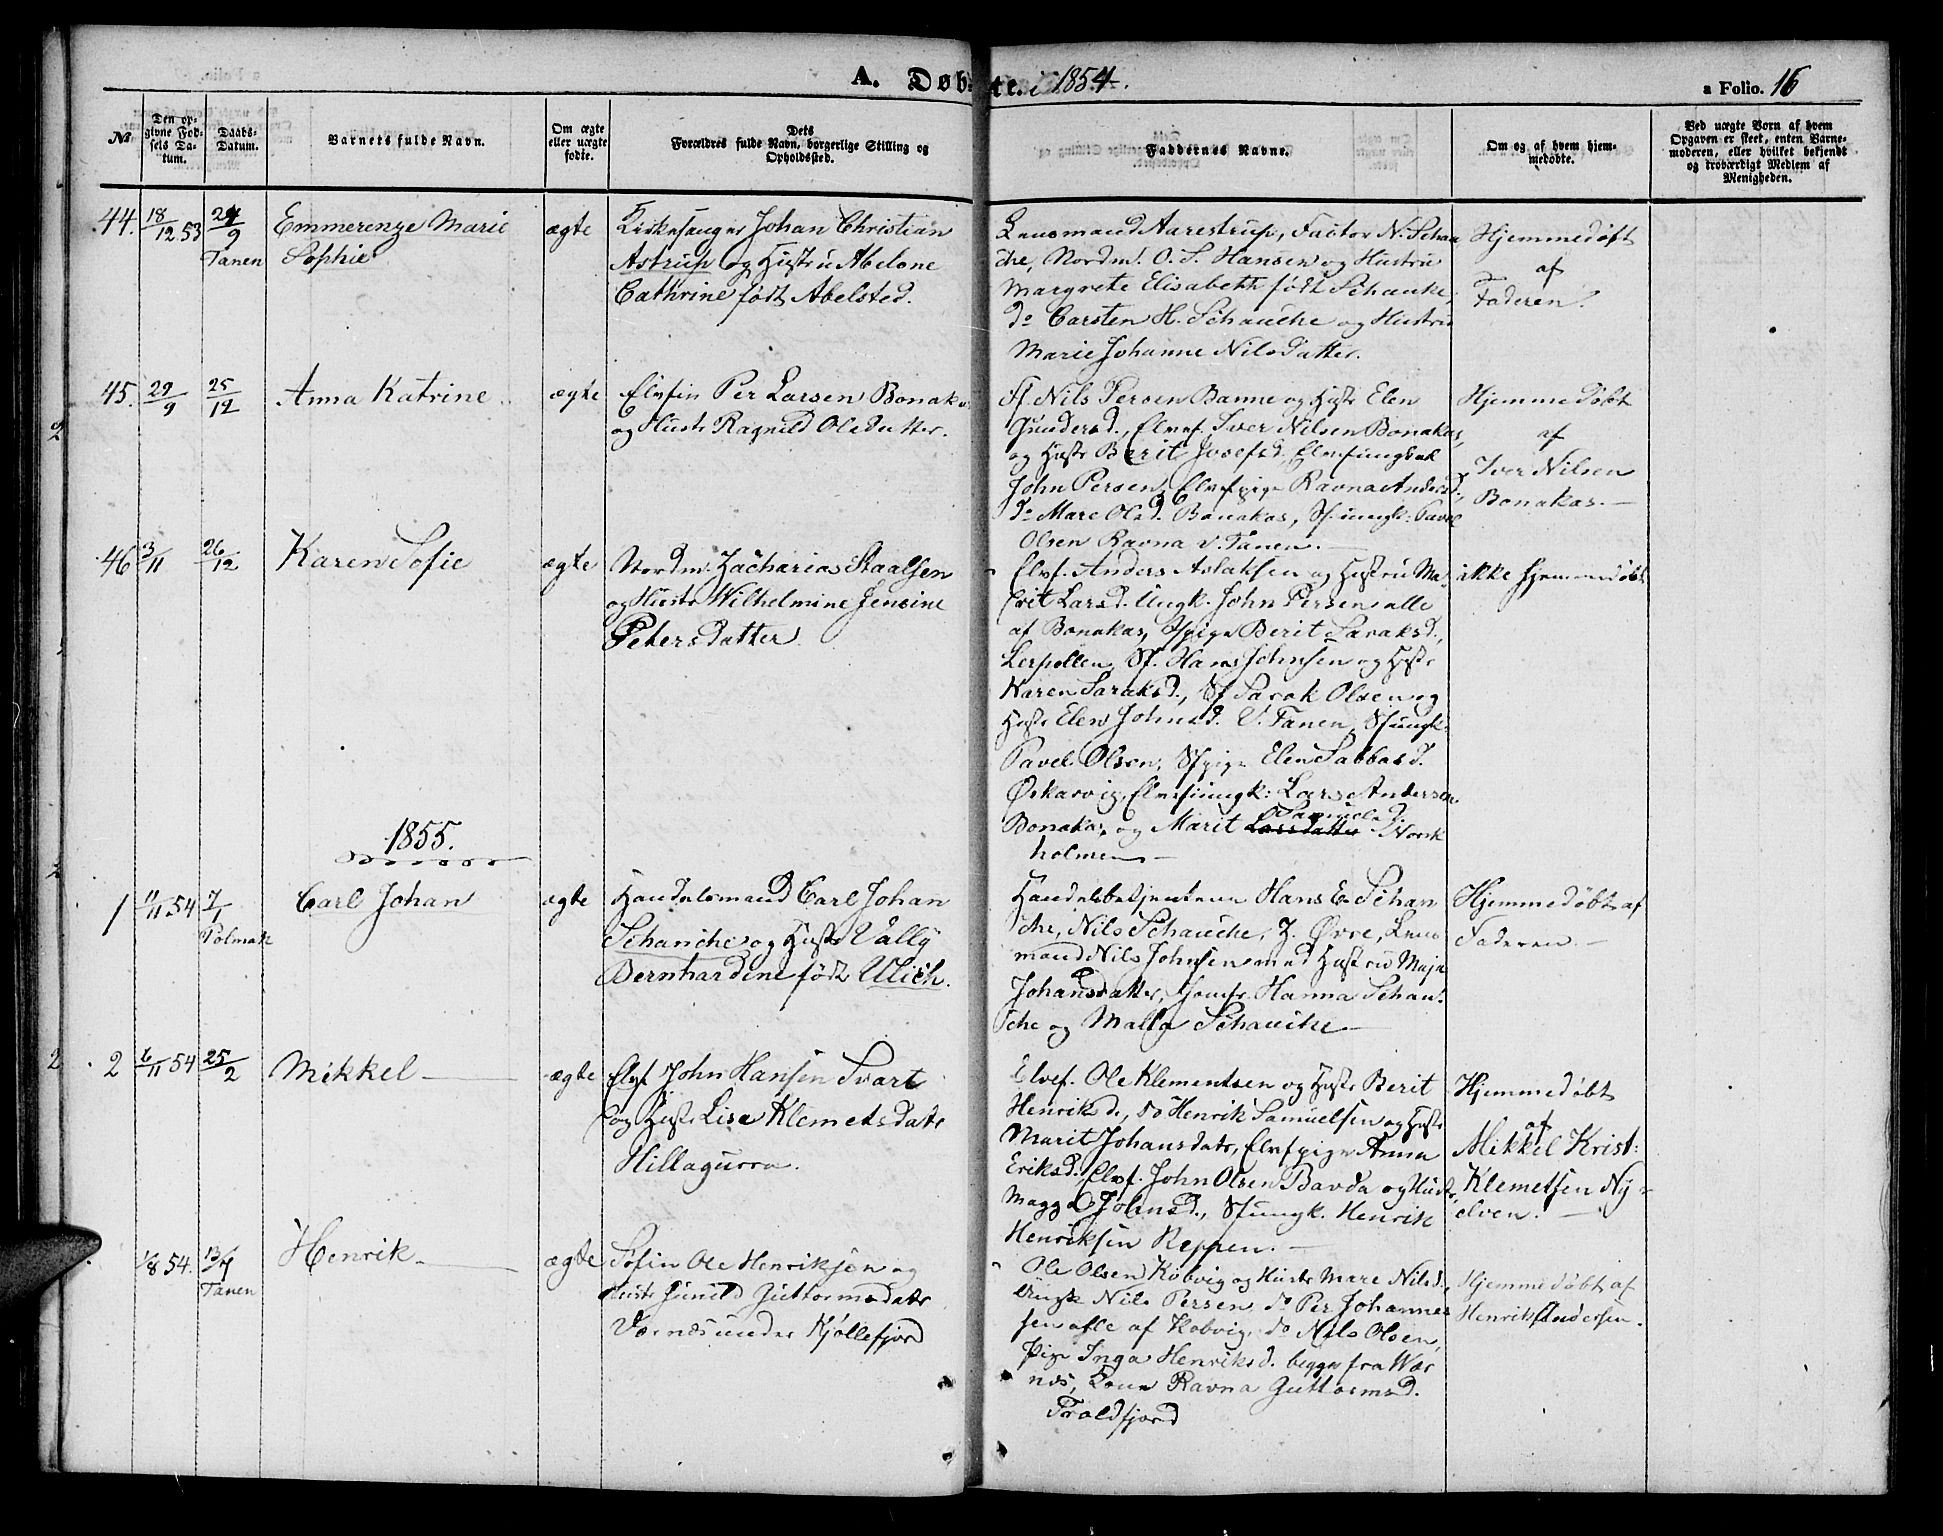 A. Døbte. i 1854.
a Folio. 16
№
Den opgivne Fødsels Datum.
Daabs-Datum.
Barnets fulde Navn.
Om ægte eller uægte fødte.
Dets Forældres fulde Navn, borgerlige Stilling og Opholdssted.
Faddernes Navne.
Om og af hvem hjemmedøbte.
Ved uægte Børn af hvem Opgaven er skeet, enten Barnemoderen, eller hvilket bekjendt og troværdigt Medlem af Menigheden.
44. 18/12 53 24/9 Tanen
Emmerenze Marie
Sophie
ægte
Kirkesanger Johan Christian
Astrup og Hustru Abelone
Cathrine født Abelsted.
Lensmand Aarestrup, Factor N. Schan
che, Nordm. O. S. Hansen og Hustru
Margrete Elisabeth født Schanke,
do Carsten H. Schanche og Hustru
Marie Johanne Nilsdatter.
Hjemmedøbt
af
Faderen.
45. 29/9 25/12
Anna Katrine
ægte
Elvfin Per Larsen Bonakas
og Hustr Ragnild Olsdatter.
Sf Nils Persen Banne og Hustr Elen
Gundersd., Elvef. Iver Nilsen Bonakas,
og Hustr Berit Josefsd, Elvfungkal
John Persen, Elvfpige Ravna Andersd.
do Mare Olsd. Bonakas, Sf. ungk: Pavel
Olsen Ravna v. Tanen.
Hjemmedøbt
af
Iver Nilsen
Bonakas.
46 3/11 26/12
Karen Sofie
ægte
Nordm. Zacharias Staalsen
og Hustr Wilhelmine Jensine
Petersdatter.
Elvf. Anders Aslaksen og Hustru Ma-
rit Larsd. Ungk. John Persen alle
af Bonakas, Sfpige Berit Saraksd.,
Lerpollen, Sf. Hans Johnsen og Hustr
Karen Saraksd., Sf Sarak Olsen og
Hustr Elen Johnsd. V. Tanen, Sfungk:
Pavel Olsen, Sfpige Elen Sabbasd.
Øskarvig, Elvefiungk: Lars Andersen
Bonakas og Marit Larsdatter Samuelsd. Norsk
holmen
ikke hjemmedøbt
1855.
1 11/11 54 7/1 Polmak
Carl Johan
ægte
Handelsmand Carl Johan
Schanche og Hustr Vally
Bernhardine født Ulich.
Handelsbetjentene Hans E. Schan
che, Nils Schanche, Z. Øvre, Lens
mand Nils Johnsen med Hustru Maja
Johansdatter, Jomfr. Hanna Schan-
che og Malla Schanche
Hjemmedøbt af
Faderen.
2 6/11 54 25/2
Mikkel
ægte
Elvf John Hansen Svart
og Hustr Lise Klemetsdatr
Hillagurra.
Elvef. Ole Klementsen og Hustr Berit
Henriksd., do Henrik Samuelsen og Hustr
Marit Johansdatr, Elvfpige Anna
Eriksd., Elvf. John Olsen Bavda og Hustr,
Magga Johnsd., Sfungk. Henrik
Henriksen Reppen.
Hjemmedøbt
af
Mikkel Krist:
Klemetsen Ny-
elven.
1/8 54. 13/4 Tanen
Henrik
ægte
Søfin Ole Henriksen og
Hustr Gunild Guttormsdatr
Værnæs under Kjøllefjord
Ole Olsen Kobvig og Hustr Mare Nilsd.,
Ungk Nils Persen, do Per Johannes
sen alle af Kobvig, do Nils Olsen,
Pige Inga Henriksd. begge fra Wær
næs, Kone Ravna Guttormsd.
Troldfjord
Hjemmedøbt af
Henrik Andersen.